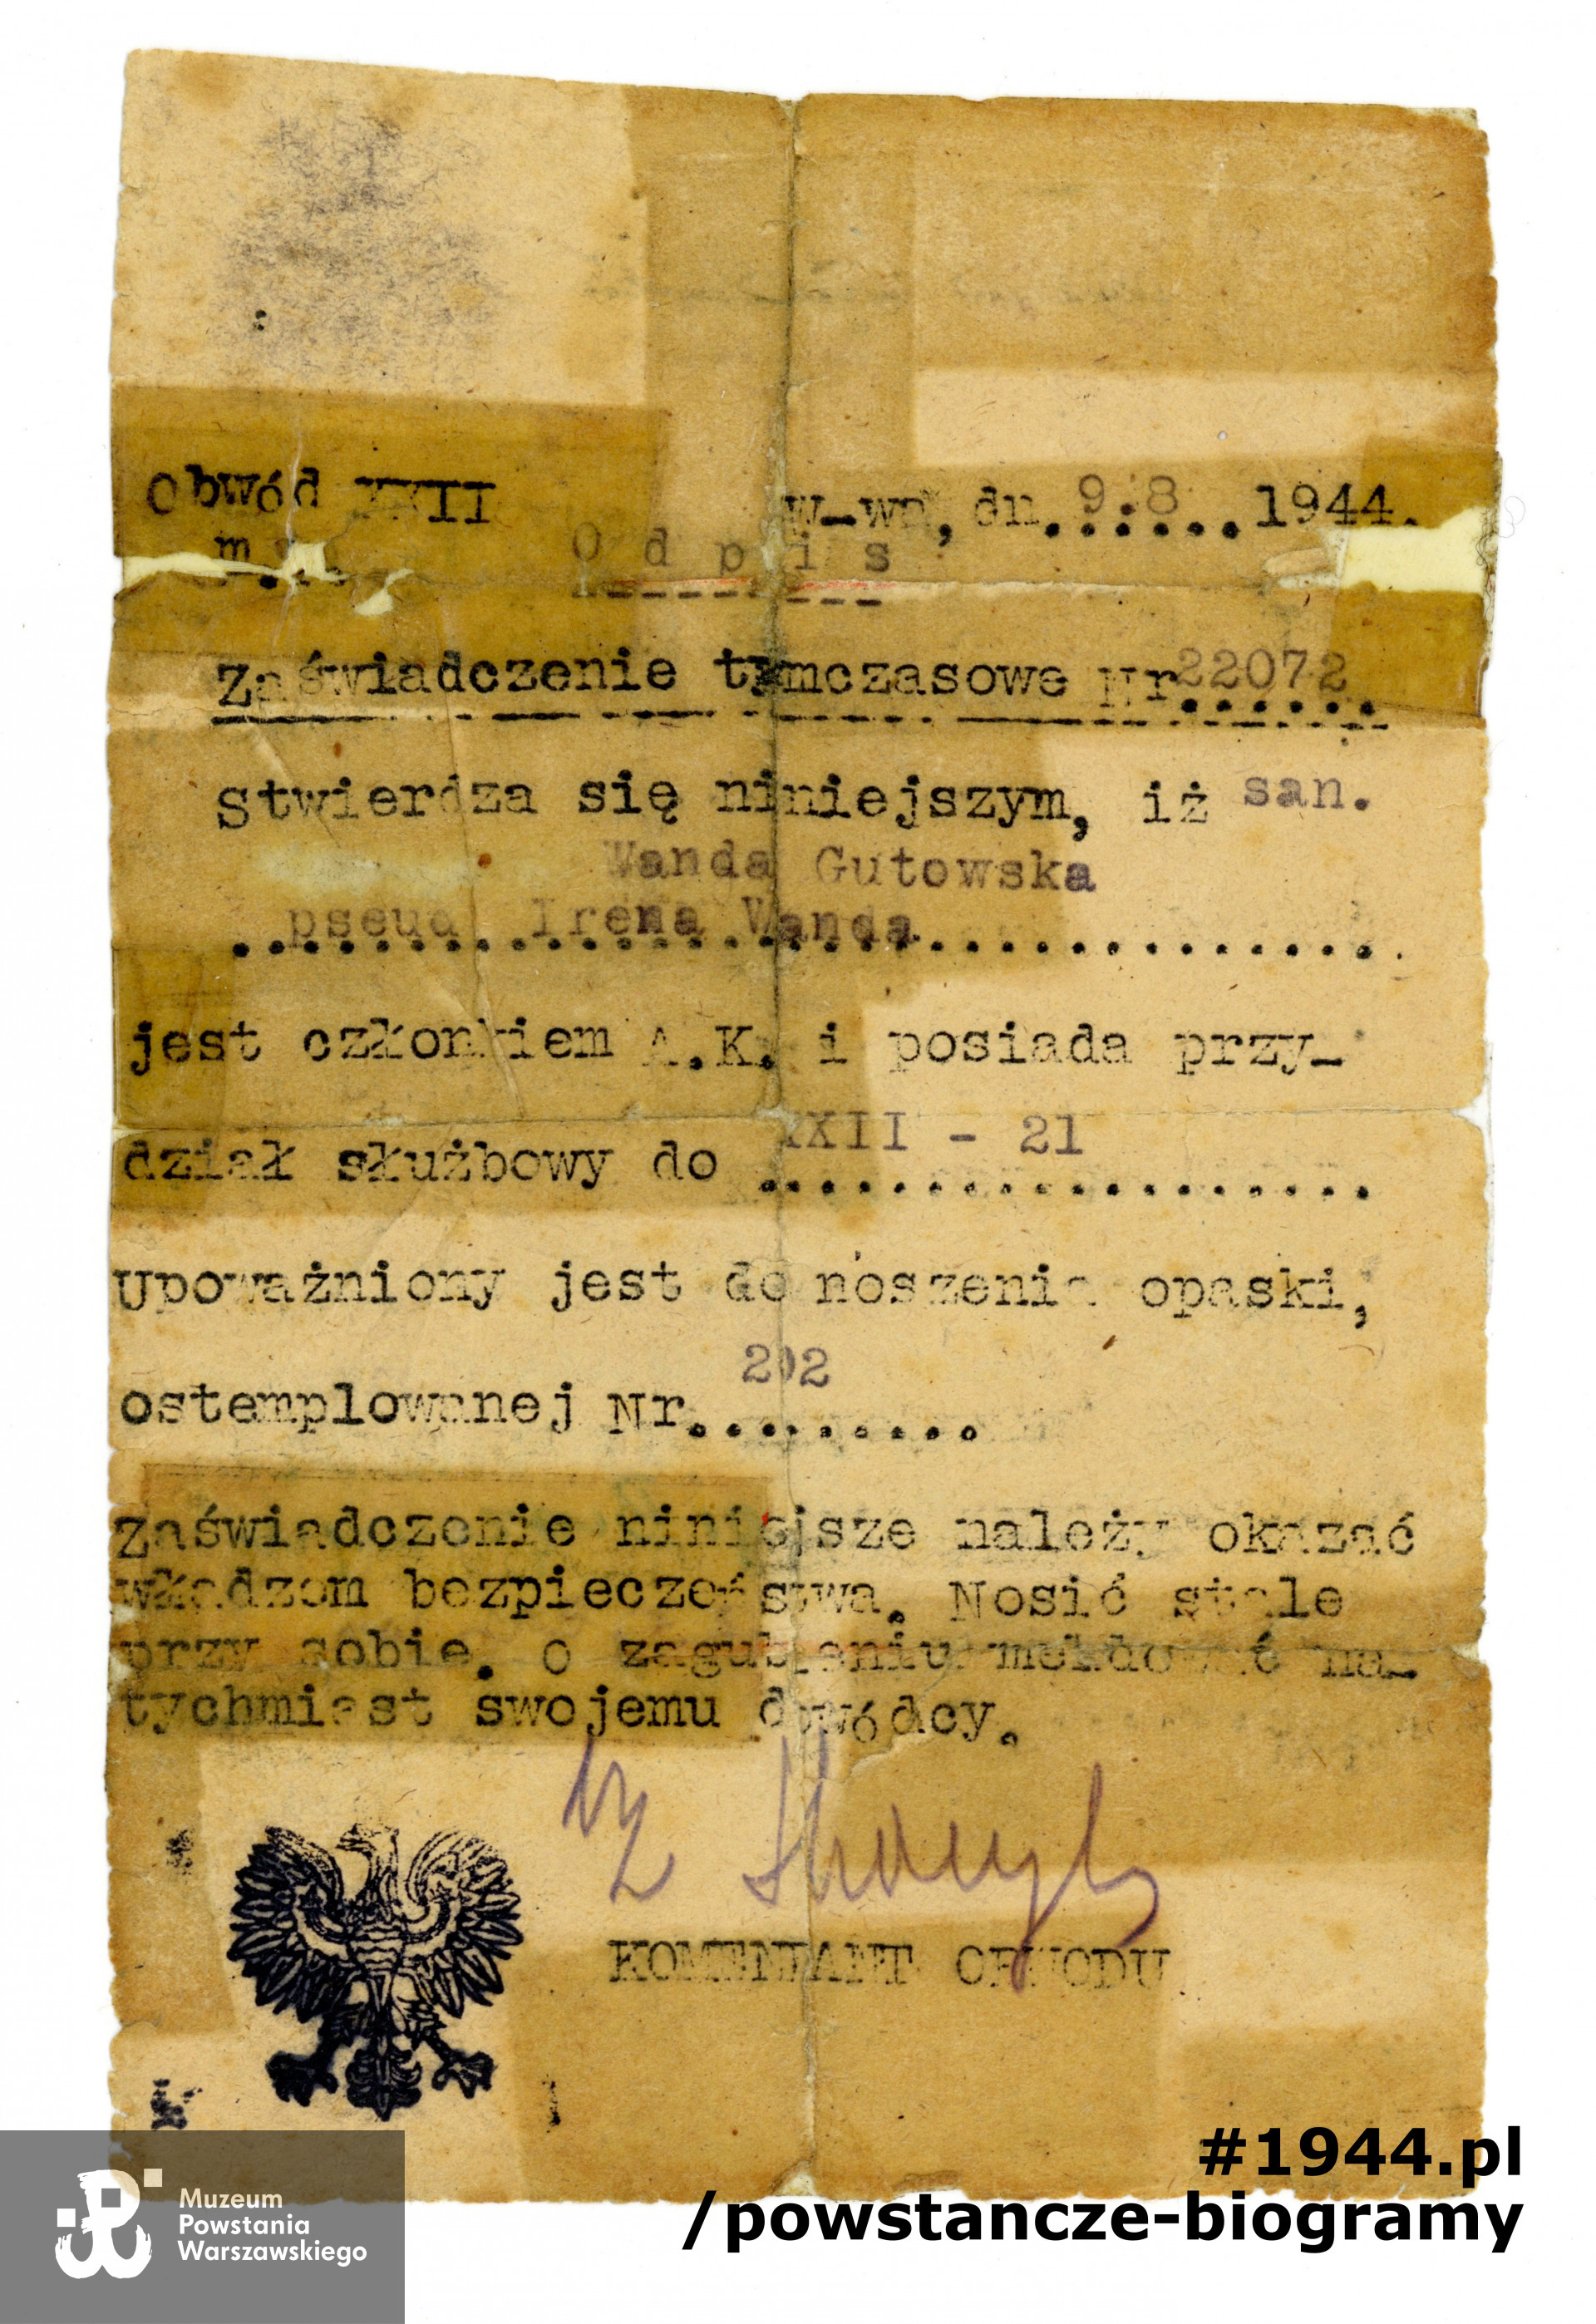 Obwód XXII
W-wa, dn. 9.8 1944.
m.
Odpis
Zaświadczenie tymczasowe Nr 22072
Stwierdza się niniejszym, iż san.
Wanda Gutowska
pseud. Irena Wanda
jest członkiem A.K. i posiada przy-
dział służbowy do XXII - 21
Upoważniony jest do noszenia opaski,
ostemplowanej Nr. 202
Zaświadczenie niniejsze należy okazać
władzom bezpieczeństwa. Nosić stale
przy sobie. O zagubieniu meldować na-
tychmiast swojemu dowódcy.
wz
KOMENDANT OBWODU
#1944.pl
/powstancze-biogramy
Muzeum
Powstania
Warszawskiego